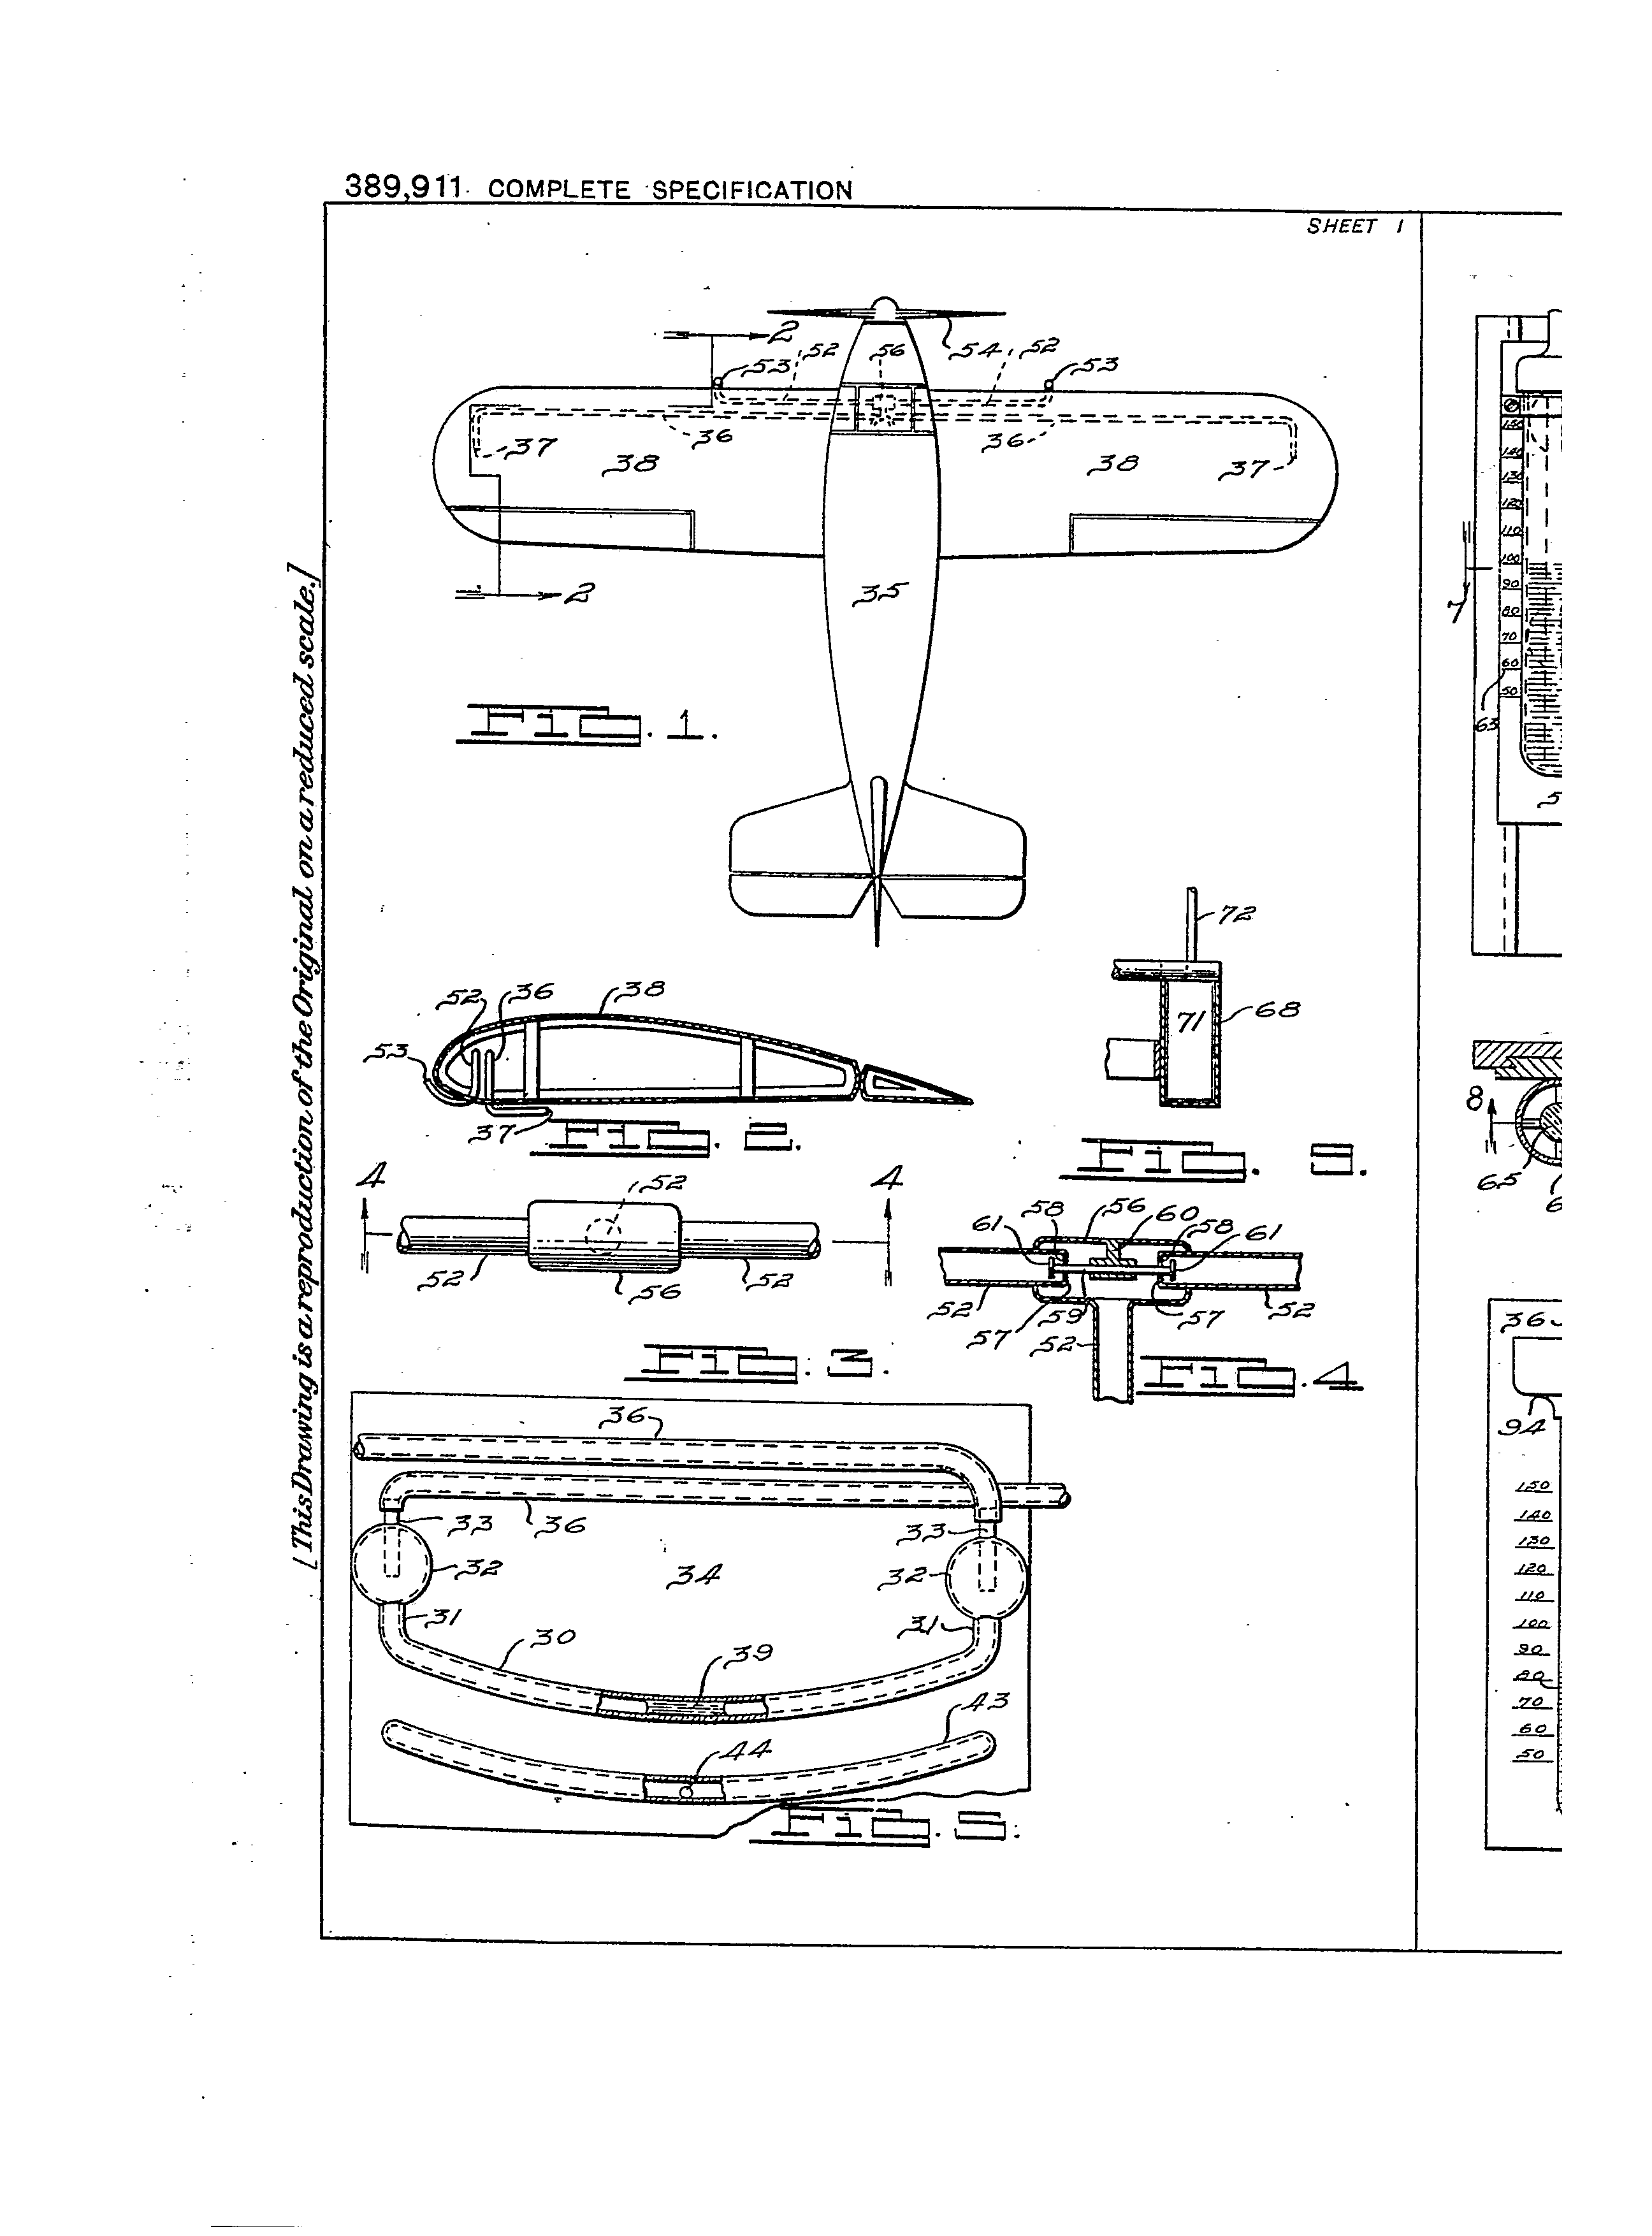 389,911 COMPLETE SPECIFICATION
SHEET 1
[This Drawing is a reproduction of the Original on a reduced scale.]
2
53
52
56
54
52
53
37
36
38
36
38
37
2
35
FIG. 1.
52
36
38
53
37
FIG. 2.
72
71
68
FIG. 8.
4
52
4
52
56
52
FIG. 3.
61
58
56
60
58
61
52
57
59
52
57
52
FIG. 4
36
36
33
33
32
34
32
31
31
30
39
43
44
FIG. 5.
140
130
120
110
100
90
80
70
60
50
7
63
8
65
36
94
150
140
130
120
110
100
90
80
70
60
50